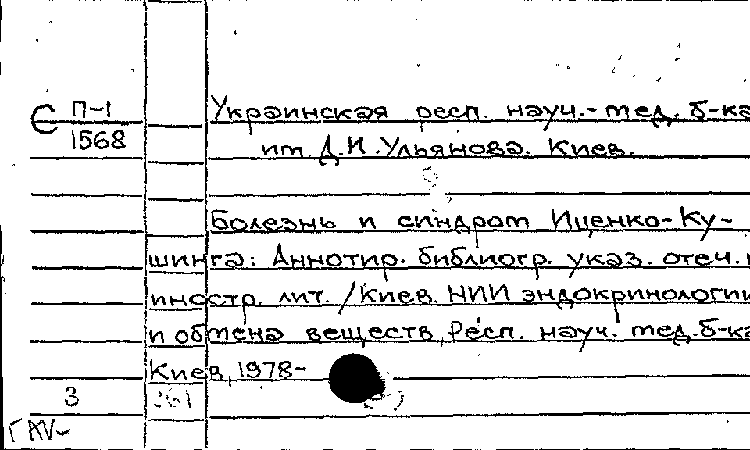 С П-1
1568
Украинская респ. науч.-мед. б-ка
им Д.И.Ульянова. Киев.
Болезнь и синдром Иценко-Ку-
шинга: Аннотир. библиогр. указ. отеч. и
иностр. лит. /Киев. НИИ эндокринологии
и обмена веществ, Респ. науч. мед. б-ка
Киев, 1978-
3